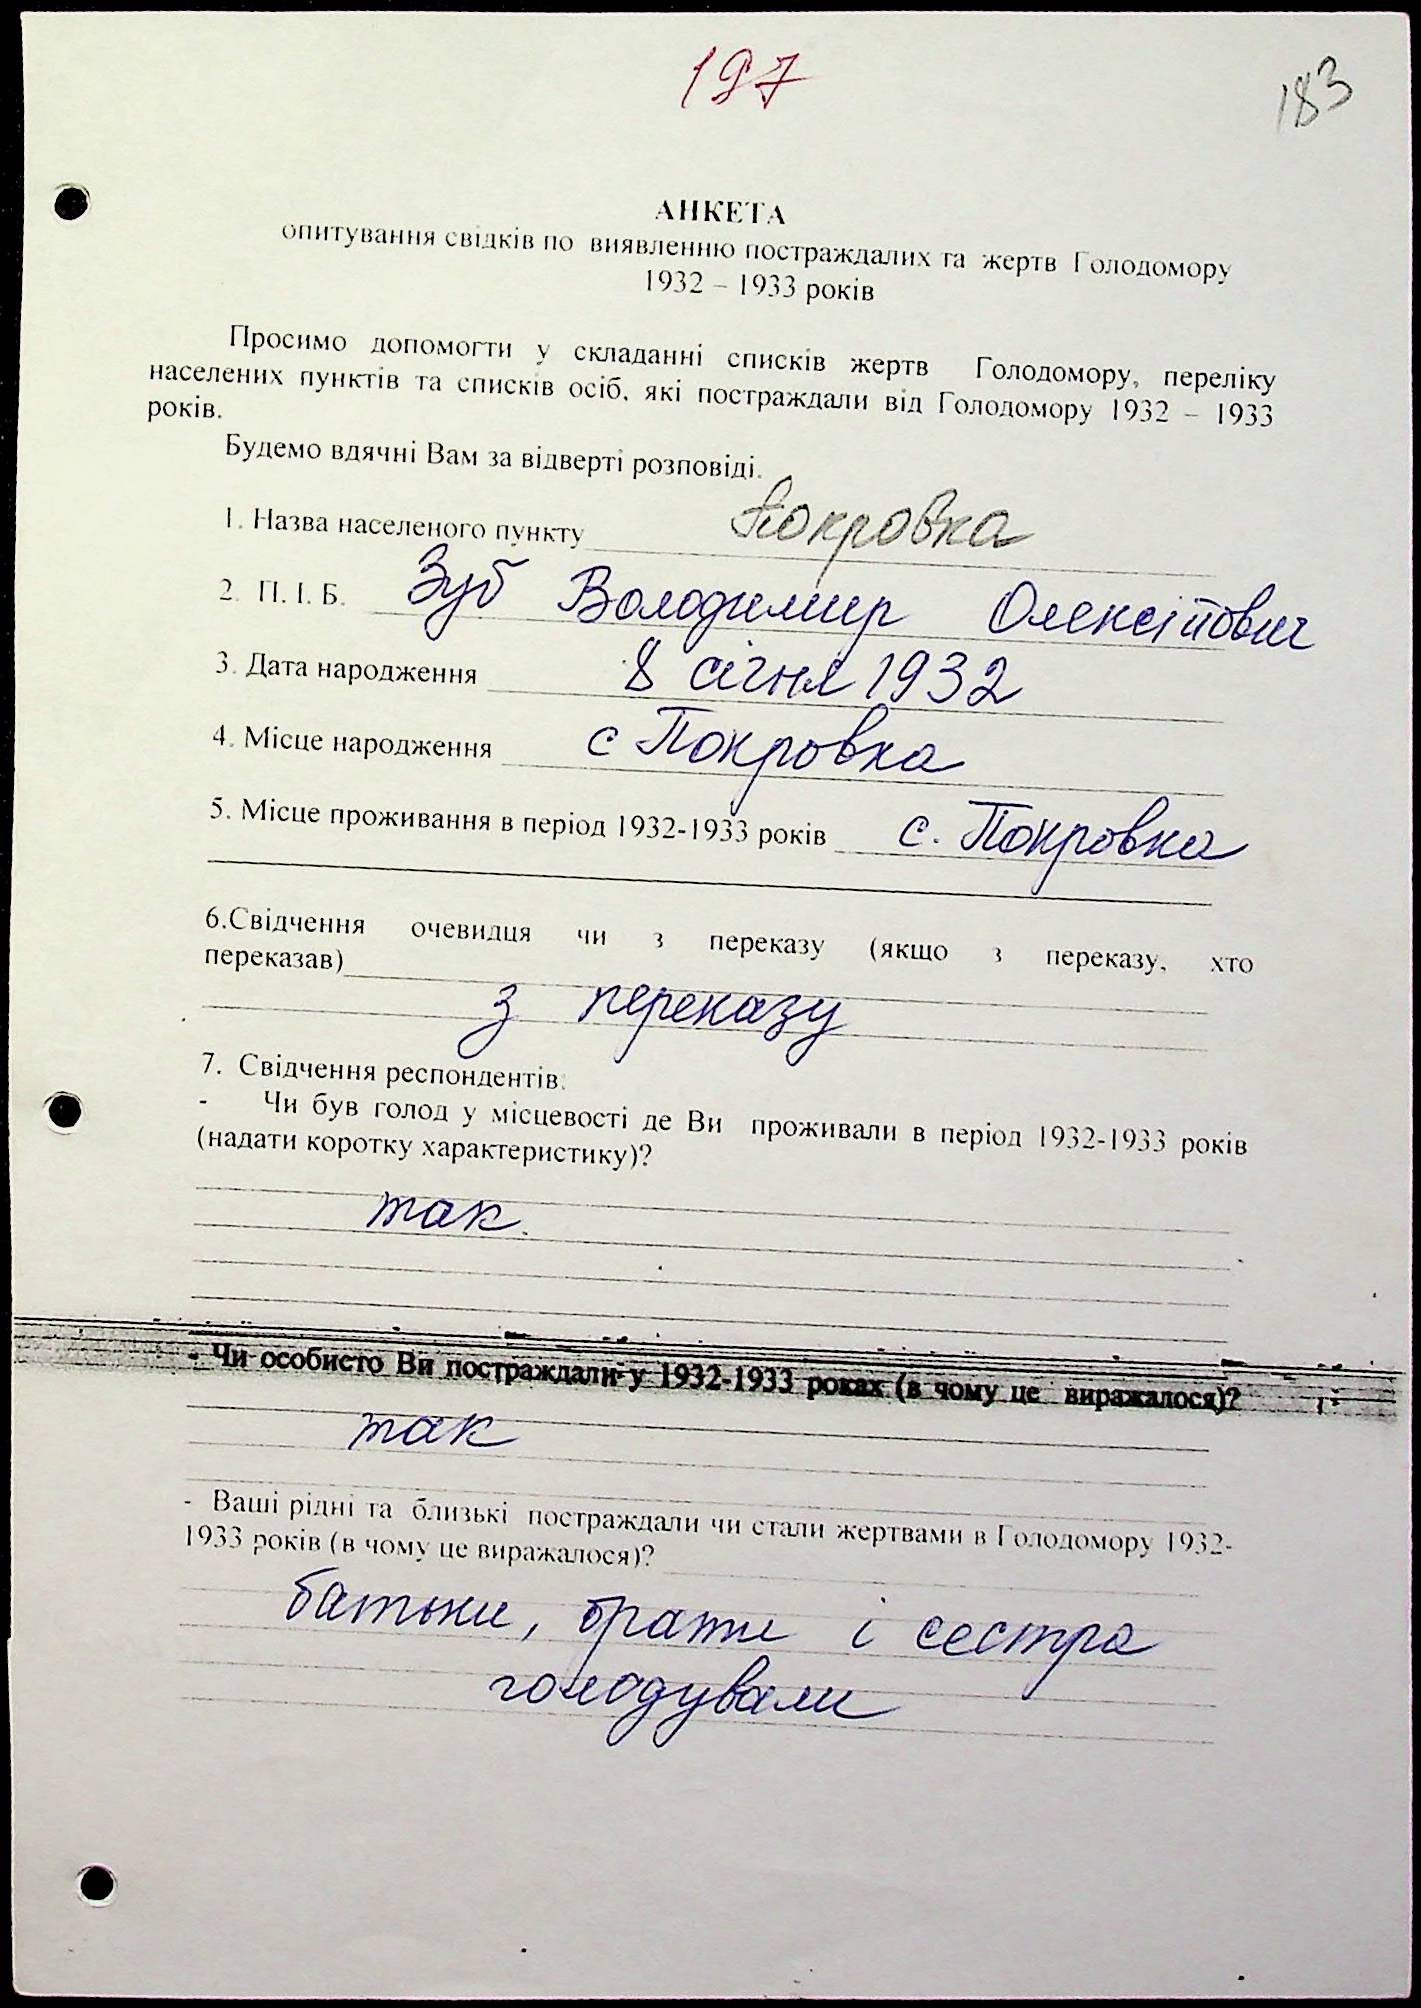 197
183
АНКЕТА
опитування свідків по виявленню постраждалих та жертв Голодомору
1932 – 1933 років
Просимо допомогти у складанні списків жертв Голодомору, переліку
населених пунктів та списків осіб, які постраждали від Голодомору 1932 – 1933
років.
Будемо вдячні Вам за відверті розповіді.
1. Назва населеного пункту Покровка
2. П. І. Б. Зуб Володимир Олексійович
3. Дата народження 8 січня 1932
4. Місце народження с Покровка
5. Місце проживання в період 1932-1933 років с. Покровка
6.Свідчення очевидця чи з переказу (якщо з переказу, хто
переказав)
з переказу
7. Свідчення респондентів:
- Чи був голод у місцевості де Ви проживали в період 1932-1933 років
(надати коротку характеристику)?
так.
- Чи особисто Ви постраждали у 1932-1933 роках (в чому це виражалося)?
так
- Ваші рідні та близькі постраждали чи стали жертвами в Голодомору 1932-
1933 років (в чому це виражалося)?
батьки, брати і сестра
голодували